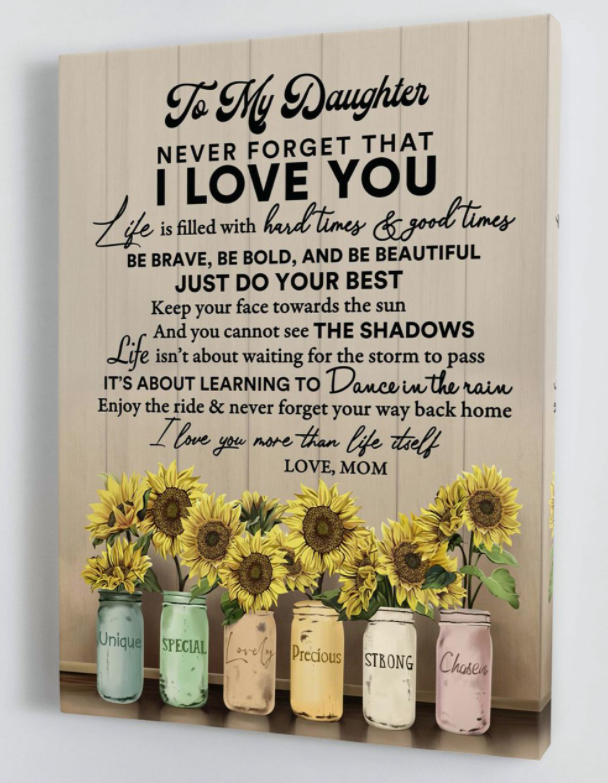 To My Daughter
NEVER FORGET THAT
I LOVE YOU
Life is filled with hard times & good times
BE BRAVE, BE BOLD, AND BE BEAUTIFUL
JUST DO YOUR BEST
Keep your face towards the sun
And you cannot see THE SHADOWS
Life isn't about waiting for the storm to pass
IT'S ABOUT LEARNING TO Dance in the rain
Enjoy the ride & never forget your way back home
I love you more than life itself
LOVE, MOM
Unique
SPECIAL
Lovely
Precious
STRONG
Chosen